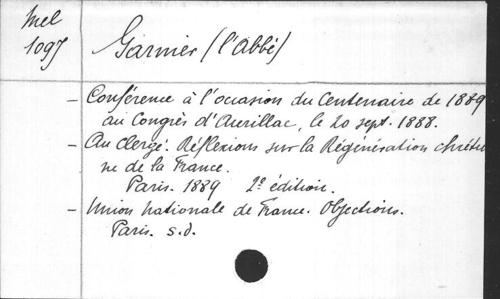 Mel
1097
Garnier (l'Abbé)
- Conférence à l'occasion du Centenaire de 1889
au Congrès d'Aurillac, le 20 sept. 1888.
- Au Clergé. Réflexions sur la Régénération chrétien
ne de la France.
Paris. 1889 2e édition.
- Union Nationale de France. Objections.
Paris. s.d.